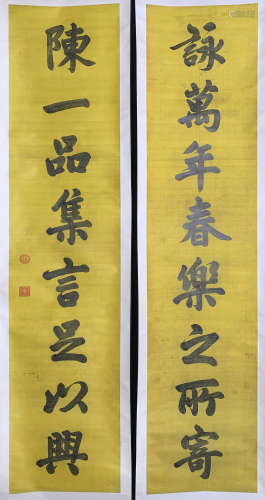 詠萬年春樂之所寄
陳一品集言足以興